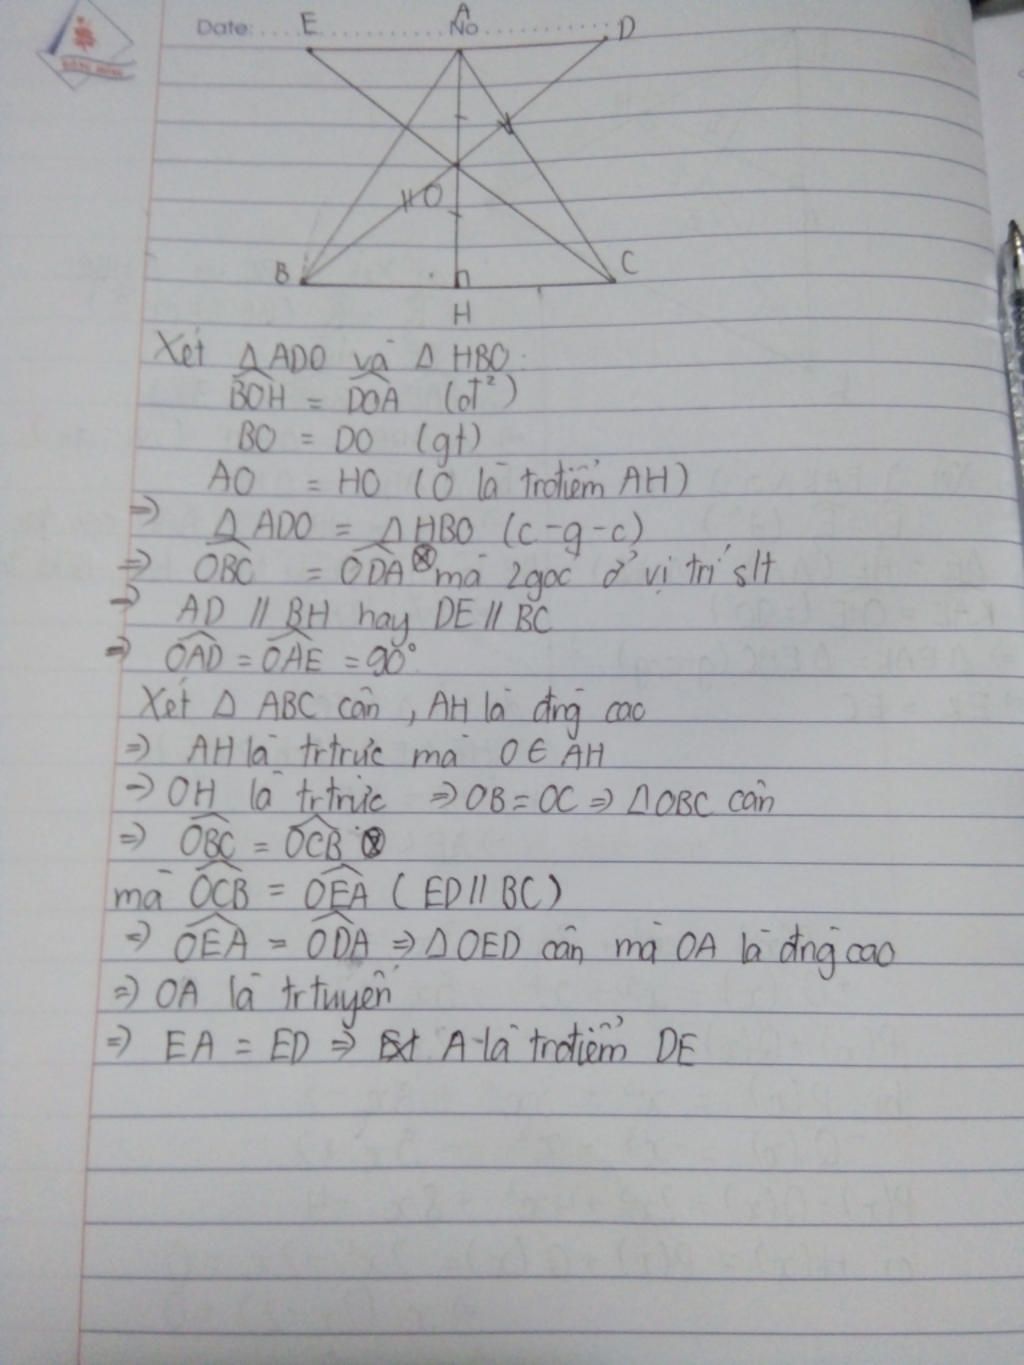 Date: No
E A D
O
B C
H
Xét △ADO và △HBO:
BOH = DOA (đ²)
BO = DO (gt)
AO = HO (O là trđiểm AH)
⇒ △ADO = △HBO (c-g-c)
⇒ OBC = ODA ⊗ mà 2góc ở vị trí slt
⇒ AD // BH hay DE // BC
⇒ OAD = OAE = 90°
Xét △ ABC cân, AH là đng cao
⇒ AH là trtrực mà O ∈ AH
⇒ OH là trtrực ⇒ OB = OC ⇒ △OBC cân
⇒ OBC = OCB ⊗
mà OCB = OEA (ED // BC)
⇒ OEA = ODA ⇒ △OED cân mà OA là đng cao
⇒ OA là trtuyến
⇒ EA = ED ⇒ A là trđiểm DE